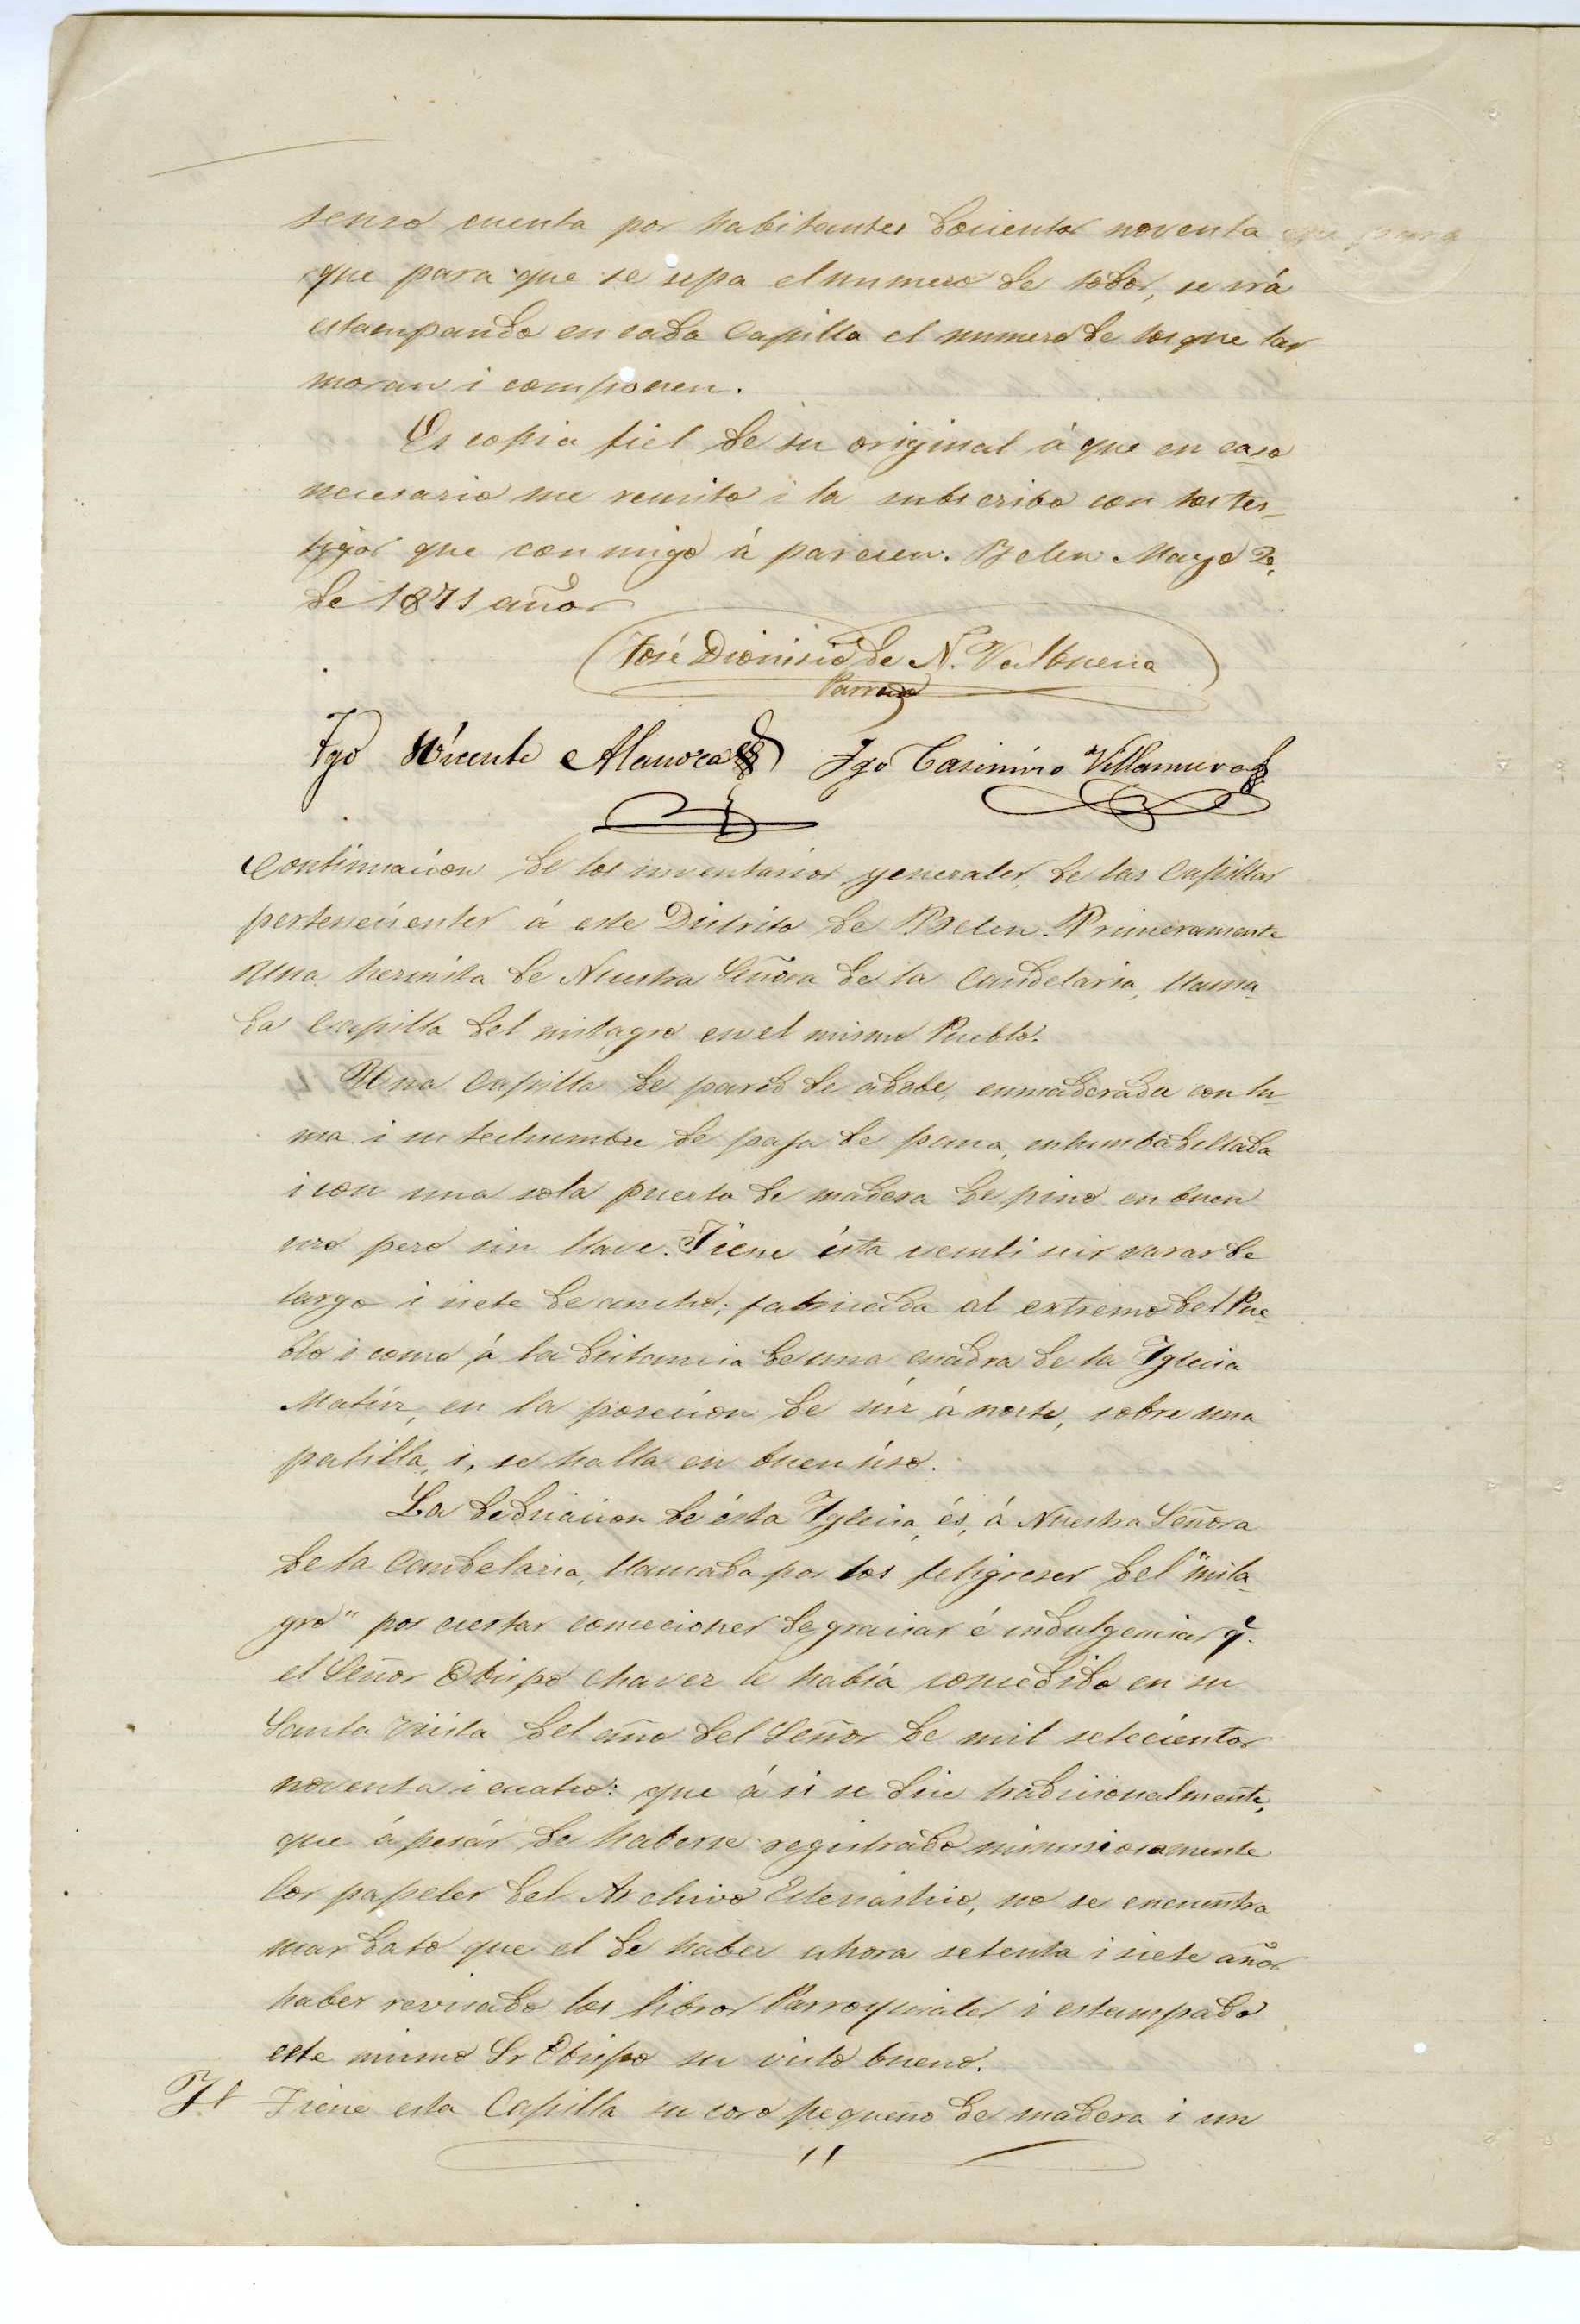 senso cuenta por habitantes docientos noventa
que para que se sepa el numero de todos, se irá
estampando en cada Capilla el numero de los que las
moran i componen.
Es copia fiel de su original á que en caso
necesario me remito i la subscribo con los tes-
tigos que conmigo á parecen. Belen Mayo 20,
de 1871 años
José Dionisio de N. Valbuena
Parroco
Tgo Vicente Alanoca Tgo Casimiro Villanueva
Continuaicon de los inventarios generales, de las Capillas
pertenecientes á este Distrito de Belen. Primeramente
Una hermita de Nuestra Señora de la Candelaria, llama-
da Capilla del milagro en el mismo Pueblo.
Una Capilla de pared de adobe, enmaderada con lu-
ma i su techumbre de paja de puna, enhumbadillada
i con una sola puerta de madera de pino en buen
uso pero sin llave. Tiene ésta veinti seis varas de
largo i siete de ancho; fabricada al extremo del Pue-
blo i como á la distancia de una cuadra de la Iglesia
Matríz, en la posecion de súr á norte, sobre una
patilla, i, se halla en buen úso.
La dedicacion de ésta Iglesia, és, á Nuestra Señora
de la Candelaria, llamada por los feligreses del "mila-
gro" por ciertas conceciones de gracias é indulgencias q.e
el Señor Obispo Chavez le había concedido en su
Santa Visita del año del Señor de mil setecientos
noventa i cuatro: que á si se dice tradicionalmente,
que á pesár de haberse registrado minusiosamente
los papeles del Archivo Eclesiastico, no se encuentra
mas dato que el de haber ahora setenta i siete años
haber revisado los libros Parroquiales i estampado
este mismo Sr Obispo su visto bueno.
It Tiene esta Capilla su coro pequeño de madera i un